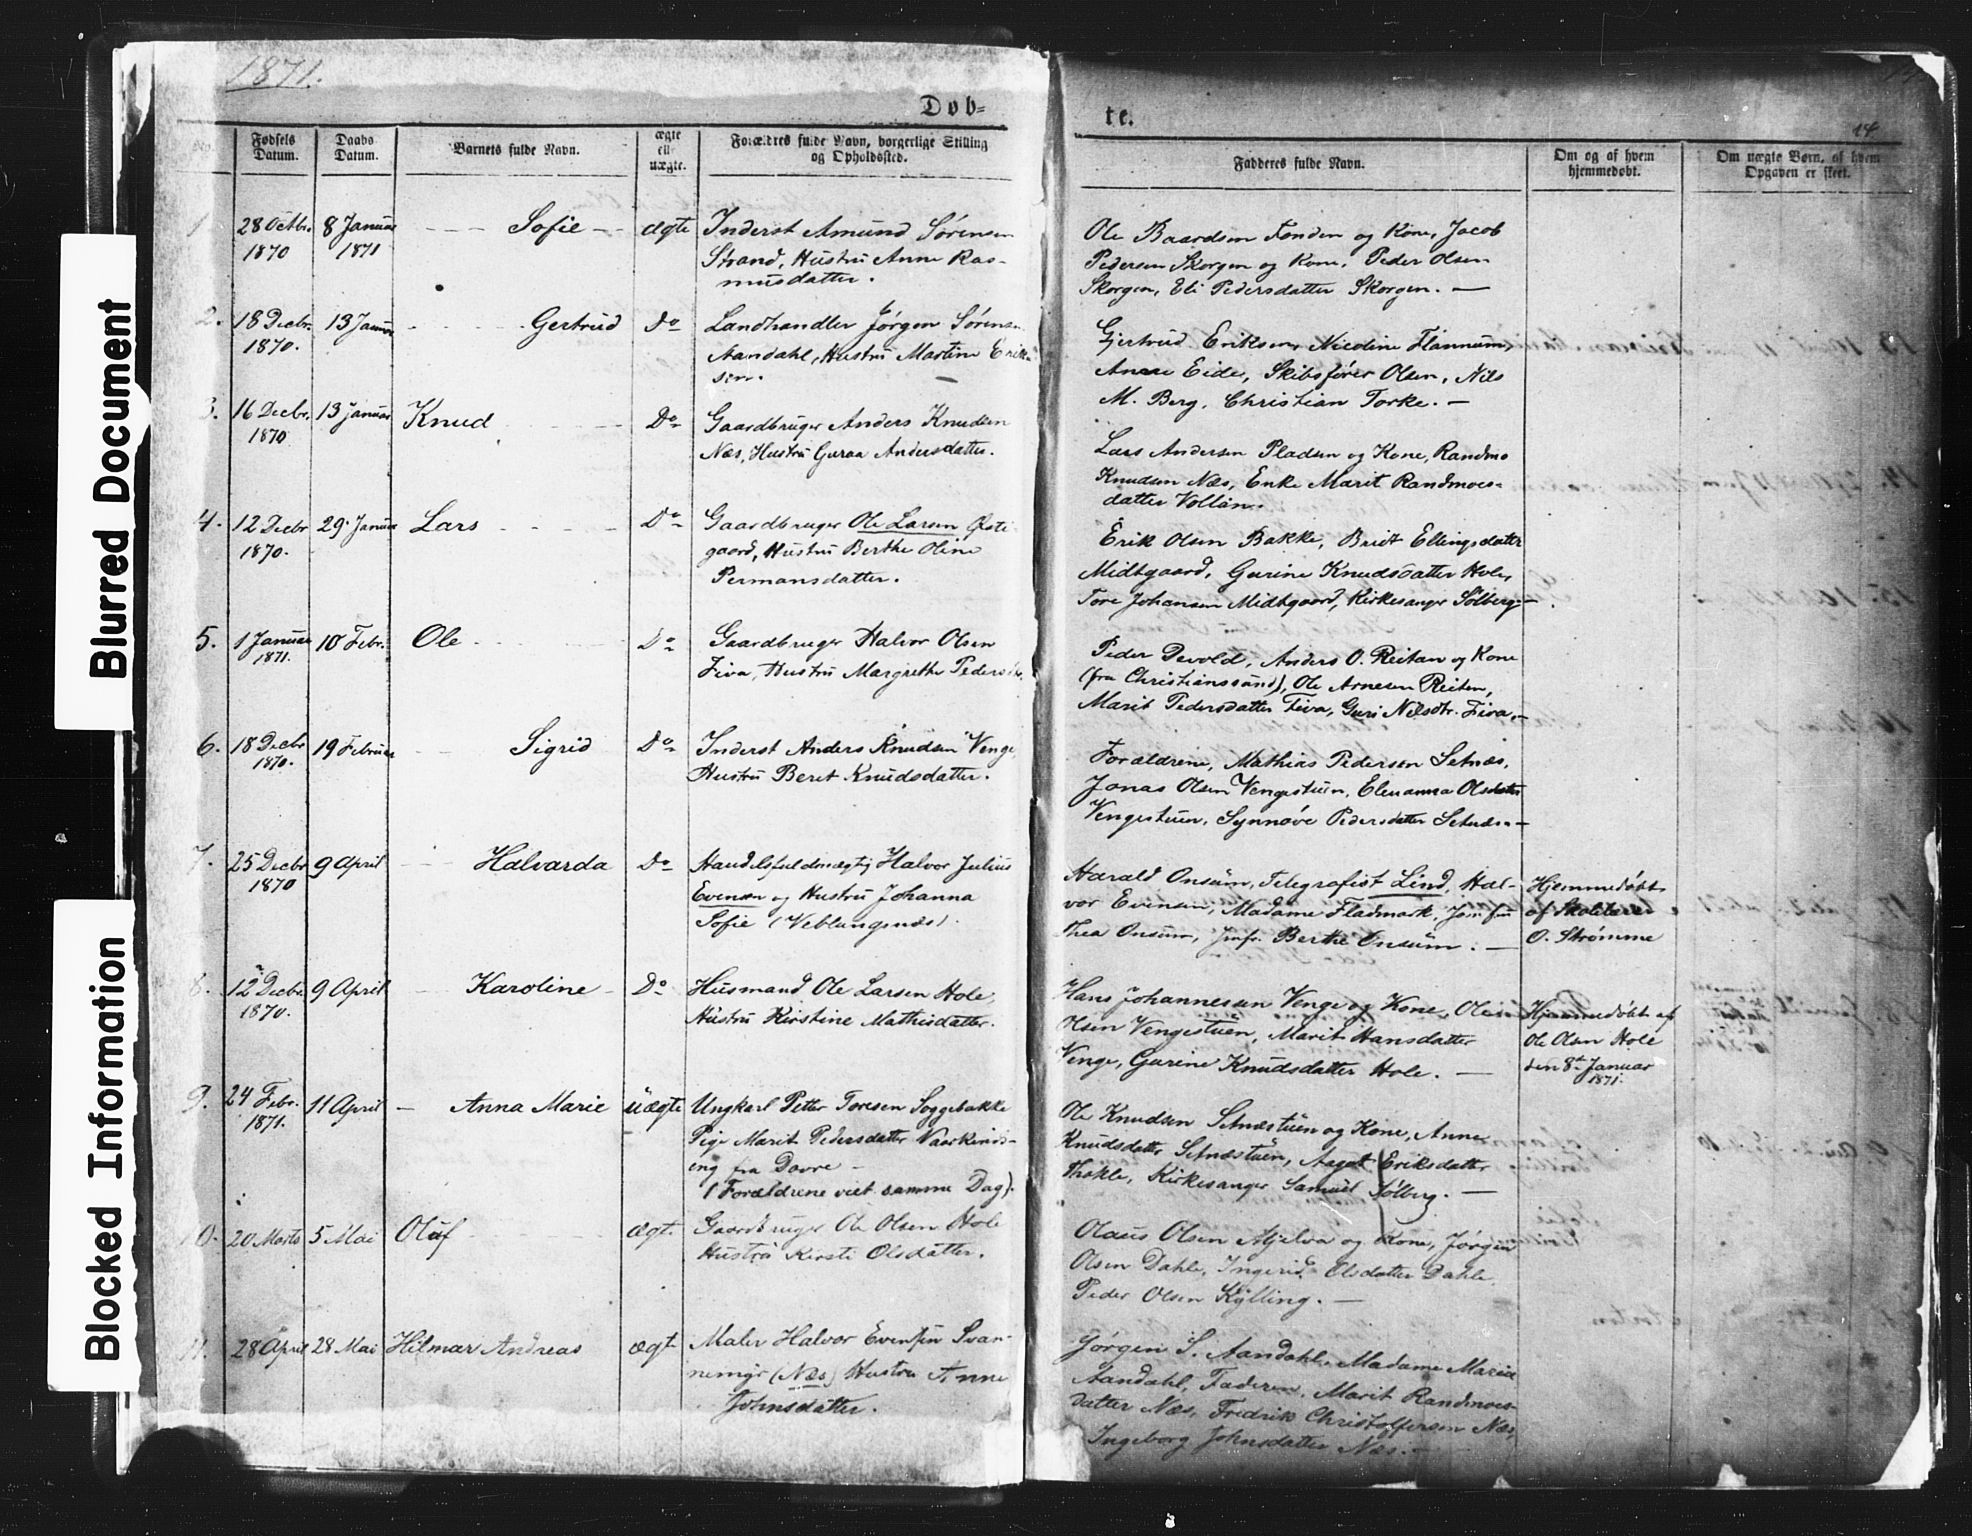 1871.
Døb=
te.
14
No.
Fødsels
Datum.
Daabs
Datum.
Barnets fulde Navn.
ægte
ell.
uægte.
Forældres fulde Navn, borgerlige Stilling
og Opholdssted.
Fadderes fulde Navn.
Om og af hvem
hjemmedøbt.
Om uægte Børn, af hvem
Opgaven er skeet.
1
28 Octbr.
1870
8 Januar
1871
Sofie
ægte
Inderst Amund Sørensen
Strand, Hustru Anne Ras-
musdatter.
Ole Baardsen Fonden og Kone, Jacob
Pedersen Skorgen og Kone, Peder Olsen
Skorgen, Eli Pedersdatter Skorgen. —
2.
18 Decbr.
1870.
13 Januar
Gertrud
Do
Landhandler Jørgen Sørensen
Aandahl, Hustru Martine Erik-
sen.
Gjertrud Eriksen, Nicoline Flannum,
Anne Eide, Skibsfører Olsen, Nils
M. Berg, Christian Torke. —
3.
16 Decbr.
1870
13 Januar
Knud
Do
Gaardbruger Anders Knudsen
Næs, Hustru Guraa Andersdatter.
Lars Andersen Pladsen og Kone, Randmo
Knudsen Næs, Enke Marit Randmoes-
datter Vollan.
4.
12 Decbr
1870.
29. Januar
Lars
Do
Gaardbruger Ole Larsen Øste
gaard, Hustru Berthe Oline
Permansdatter.
Erik Olsen Bakke, Bridt Ellingsdatter
Midtgaard, Gurine Knudsdatter Hole,
Tore Johansen Midtgaard, Kirkesanger Sølberg. —
5.
1 Januar
1871.
10 Febr.
Ole
Do
Gaardbruger Halvor Olsen
Fiva, Hustru Margrethe Pedersdtr.
Peder Devold, Anders O. Reitan og Kone
(fra Christianssund), Ole Arnesen Reiten,
Marit Pedersdatter Fiva, Guri Nilsdtr. Fiva. —
6.
18 Decbr
1870.
19 Februar
Sigrid
Do
Inderst Anders Knudsen Venge,
Hustru Beret Knudsdatter.
Forældrene, Mathias Pedersen Setnæs,
Jonas Olsen Vengestuen, Elenanna Olsdatter
Vengestuen, Synnøve Pedersdatter Setnæs. —
7.
25 Decbr
1870
9 April
Halvarda
Do
Handelsfuldmægtig Halvor Julius
Evensen og Hustru Johanna
Sofie (Veblungsnæs).
Harald Onsum, Telegrafist Lind, Hal-
vor Evensen, Madame Fladmark, Jomfru
Thea Onsum, Jmfr. Berthe Onsum. —
Hjemmedøbt
af Skolelærer
O. Strømme
8.
12 Decbr.
1870.
9 April
Karoline
Do
Husmand Ole Larsen Hole,
Hustru Kirstine Mathisdatter.
Hans Johannessen Venge og Kone, Ole
Olsen Vengestuen, Marit Hansdatter
Venge, Gurine Knudsdatter Hole. —
Hjemmedøbt af
Ole Olsen Hole
den 8de Januar
1871.
9.
24 Febr.
1871.
11 April
Anna Marie
uægte
Ungkarl Petter Toresen Soggebakke
Pige Marit Pedersdatter
eng fra Dovre —
(Forældrene viet samme Dag).
Ole Knudsen Setnæstuen og Kone, Anne
Knudsdatter Setnæstuen, Aagot Eriksdatter
Thokle, Kirkesanger Samuel Sølberg. —
10.
20 Marts
5 Mai
Oluf
ægt.
Gaardbruger Ole Olsen Hole
Hustru Kirsti Olsdatter.
Olaus Olsen Mjelva og Kone, Jørgen
Olsen Dahle, Ingerid Olsdatter Dahle
Peder Olsen Kylling. —
11.
28 April
28 Mai
Hilmar Andreas
ægt.
Maler Halvor Evensen Svan-
nemyr (Næs) Hustru Anne
Johnsdatter.
Jørgen S. Aandahl, Madame Maria
Aandahl, Faderen, Marit Randmoes-
datter Næs, Fredrik Christoffersen Næs,
Ingeborg Johnsdatter Næs. —
Blurred Document
Blocked Information